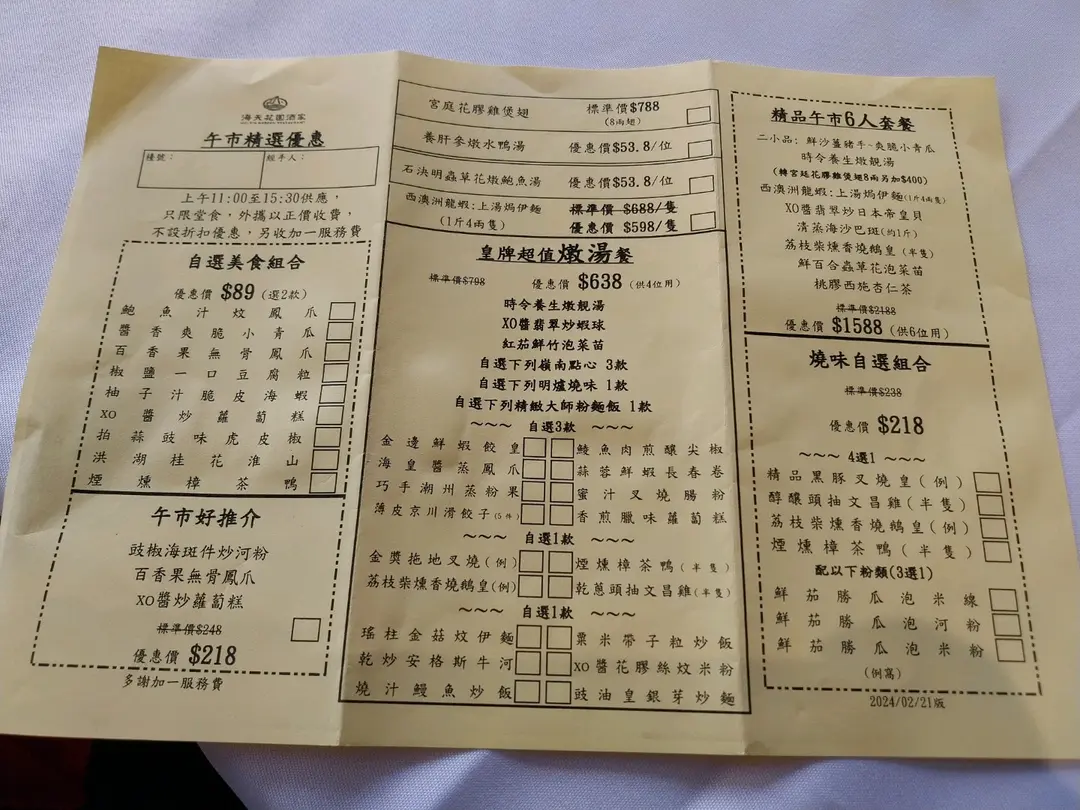 海天花園酒家
午市精選優惠
檯號：
經手人：
上午11:00至15:30供應，
只限堂食，外攜以正價收費，
不設折扣優惠，另收加一服務費
自選美食組合
優惠價 $89 (選2款)
鮑魚汁炆鳳爪
醬香爽脆小青瓜
百香果無骨鳳爪
椒鹽一口豆腐粒
柚子汁脆皮海蝦
XO醬炒蘿蔔糕
拍蒜豉味虎皮椒
洪湖桂花淮山
煙燻樟茶鴨
午市好推介
豉椒海斑件炒河粉
百香果無骨鳳爪
XO醬炒蘿蔔糕
標準價$248
優惠價 $218
多謝加一服務費
宮庭花膠雞煲翅 標準價$788
(8兩翅)
養肝參燉水鴨湯 優惠價$53.8/位
石決明蟲草花燉鮑魚湯 優惠價$53.8/位
西澳洲龍蝦:上湯焗伊麵 標準價 $688/隻
(1斤4兩隻) 優惠價 $598/隻
皇牌超值燉湯餐
標準價$798 優惠價 $638 (供4位用)
時令養生燉靚湯
XO醬翡翠炒蝦球
紅茄鮮竹泡菜苗
自選下列嶺南點心 3款
自選下列明爐燒味 1款
自選下列精緻大師粉麵飯 1款
～～～ 自選3款 ～～～
金邊鮮蝦餃皇 鯪魚肉煎釀尖椒
海皇醬蒸鳳爪 蒜蓉鮮蝦長春卷
巧手潮州蒸粉果 蜜汁叉燒腸粉
薄皮京川滑餃子(5件) 香煎臘味蘿蔔糕
～～～ 自選1款 ～～～
金獎拖地叉燒(例) 煙燻樟茶鴨(半隻)
荔枝柴燻香燒鵝皇(例) 乾蔥頭抽文昌雞(半隻)
～～～ 自選1款 ～～～
瑤柱金菇炆伊麵 粟米帶子粒炒飯
乾炒安格斯牛河 XO醬花膠絲炆米粉
燒汁鰻魚炒飯 豉油皇銀芽炒麵
精品午市6人套餐
二小品: 鮮沙薑豬手~爽脆小青瓜
時令養生燉靚湯
(轉宮廷花膠雞煲翅8兩另加$400)
西澳洲龍蝦:上湯焗伊麵(1斤4兩隻)
XO醬翡翠炒日本帝皇貝
清蒸海沙巴斑(約1斤)
荔枝柴燻香燒鵝皇(半隻)
鮮百合蟲草花泡菜苗
桃膠西施杏仁茶
標準價$2188
優惠價 $1588 (供6位用)
燒味自選組合
標準價$238
優惠價 $218
～～～ 4選1 ～～～
精品黑豚叉燒皇(例)
醇釀頭抽文昌雞(半隻)
荔枝柴燻香燒鵝皇(例)
煙燻樟茶鴨(半隻)
配以下粉類(3選1)
鮮茄勝瓜泡米線
鮮茄勝瓜泡河粉
鮮茄勝瓜泡米粉
(例窩)
2024/02/21版